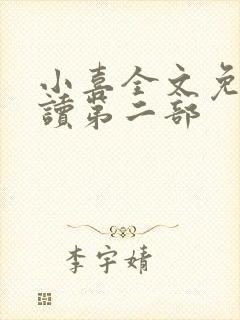 小喜全文免
讀第二部
李宇婧